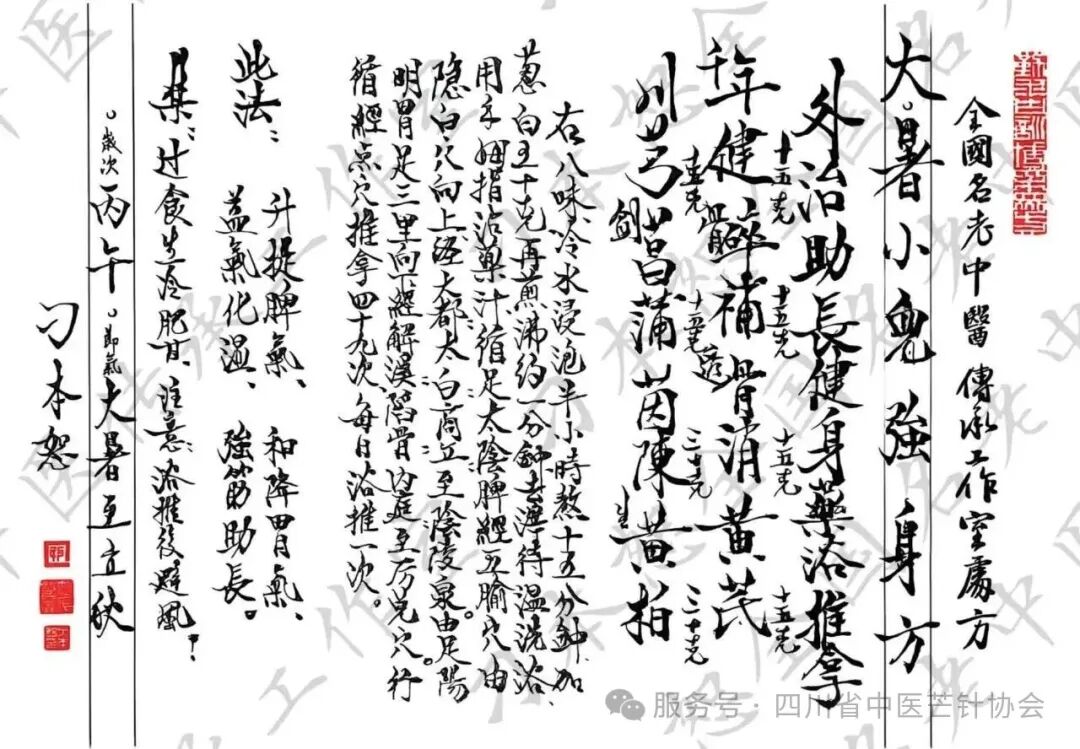 全國名老中醫傳承工作室處方
大暑小兒強身方
外治助長健身藥浴推拿
十五克 十五克 十五克 十五克
千年健 骨碎補 透骨消 黃芪
十五克 十五克 三十克 三十克
川芎 劍菖蒲 茵陳 生黃柏
右八味冷水浸泡半小時熬十五分鈡加
蔥白五十克再煎沸約一分鈡去渣待溫洗浴、
用手姆指沾藥汁循足太陰脾經五腧穴由
隐白穴向上經大都太白商丘至陰陵泉。由足陽
明胃足三里向下經解溪陷骨内庭至厉兑穴行
循經点穴推拿四十九次每日浴推一次。
此法：升提脾氣、和降胃氣、
益氣化濕、強筋助長。
忌禁：过食生冷肥甘、注意：浴推後避風！
歲次丙午。節氣大暑至立秋
刁本恕
服务号 · 四川省中医芒针协会